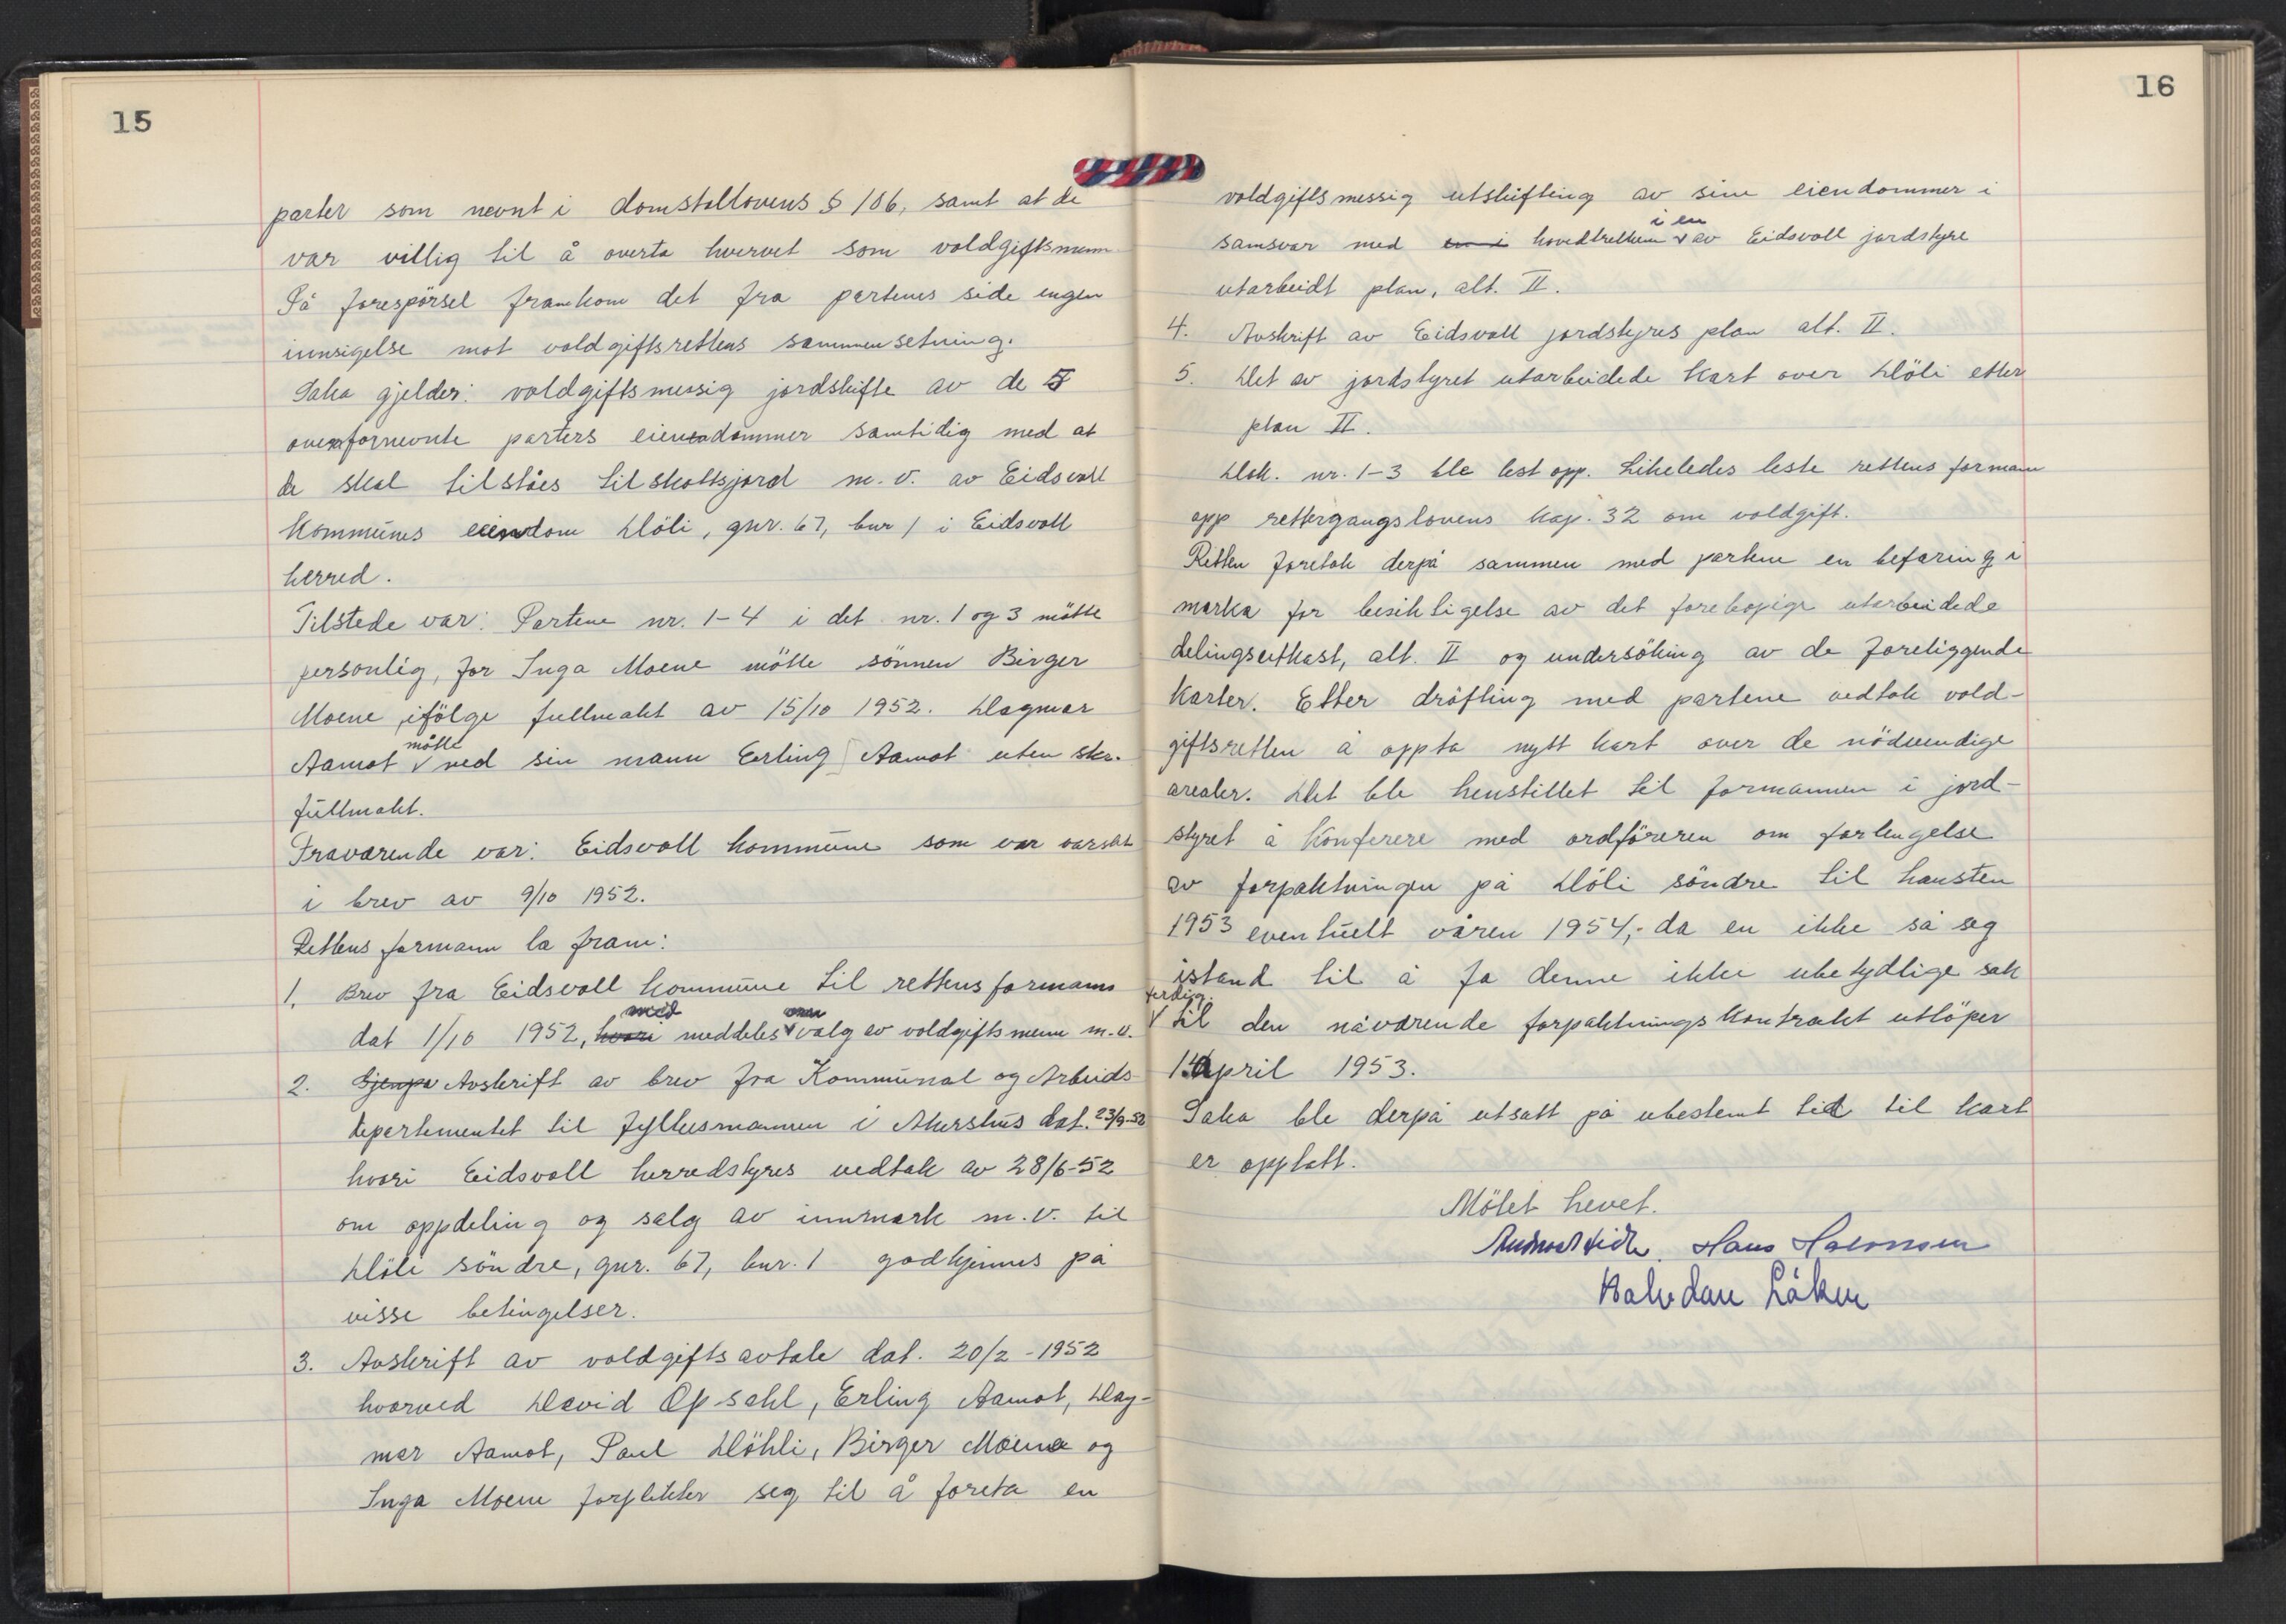 15
parter som nevnt i domstollovens § 106, samt at de
var villig til å overta hvervet som voldgiftsmenn
På forespørsel framkom det fra partenes side ingen
innsigelse mot voldgiftsrettens sammensetning.
Saka gjelder: voldgiftsmessig jordskifte av de 5
ovenfornevnte parters eiendommer samtidig med at
de skal tilståes tilskottsjord m.v. av Eidsvoll
kommunes eiendom Döli, gnr. 67, bnr 1 i Eidsvoll
herred.
Tilstede var: Partene nr. 1-4 i det nr. 1 og 3 mötte
personlig, for Inga Moene mötte sönnen Birger
Moene, ifölge fullmakt av 15/10 1952. Dagmar
Aamot mötte ved sin mann Erling Aamot uten skr.
fullmakt.
Fraværende var: Eidsvoll kommune som var varslet
i brev av 9/10 1952.
Rettens formann la fram:
1. Brev fra Eidsvoll kommune til rettens formann
dat 1/10 1952, hvori med meddeles om valg av voldgiftsmenn m.v.
2. Gjenpa Avskrift av brev fra Kommunal og Arbeids-
departementet til Fylkesmannen i Akershus dat. 23/9-52
hvori Eidsvoll herredstyres vedtak av 28/6-52
om oppdeling og salg av innmark m.v. til
Döli söndre, gnr. 67, bnr. 1 godkjennes på
visse betingelser.
3. Avskrift av voldgiftsavtale dat. 20/2-1952
hvorved David Opsahl, Erling Aamot, Dag-
mar Aamot, Paul Döhli, Birger Moene og
Inga Moene forplikter seg til å foreta en
16
voldgiftsmessig utskifting av sine eiendommer i
samsvar med en i hovedtrekkene i en av Eidsvoll jordstyre
utarbeidt plan, alt. II.
4. Avskrift av Eidsvoll jordstyres plan alt. II.
5. Det av jordstyret utarbeidede kart over Döli etter
plan II.
Dok. nr. 1-3 ble lest opp. Likeledes leste rettens formann
opp rettergangslovens kap. 32 om voldgift.
Retten foretok derpå sammen med partene en befaring i
marka for besiktigelse av det forelöpige utarbeidede
delingsutkast, alt. II og undersöking av de foreliggende
karter. Etter dröfting med partene vedtok vold-
giftsretten å oppta nytt kart over de nödvendige
arealer. Det ble henstillet til formannen i jord-
styret å konferere med ordföreren om forlengelse
av forpaktningen på Döli söndre til hausten
1953 eventuelt våren 1954, - da en ikke så seg
istand til å få denne ikke ubetydlige sak
ferdig til den nåværende forpaktningskontrakt utlöper
14 april 1953.
Saka ble derpå utsatt på ubestemt tid til kart
er opptatt.
Mötet hevet.
Hans Halvorsen
Halvdan Låken